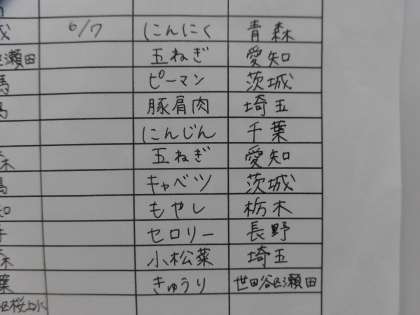 6/7 にんにく 青森
瀬田 五ねぎ 愛知
ピーマン 茨城
豚肩肉 埼玉
にんじん 千葉
森 五ねぎ 愛知
キャベツ 茨城
知 もやし 栃木
セロリー 長野
森 小松菜 埼玉
葉 きゅうり 世田谷区瀬田
区桜上水